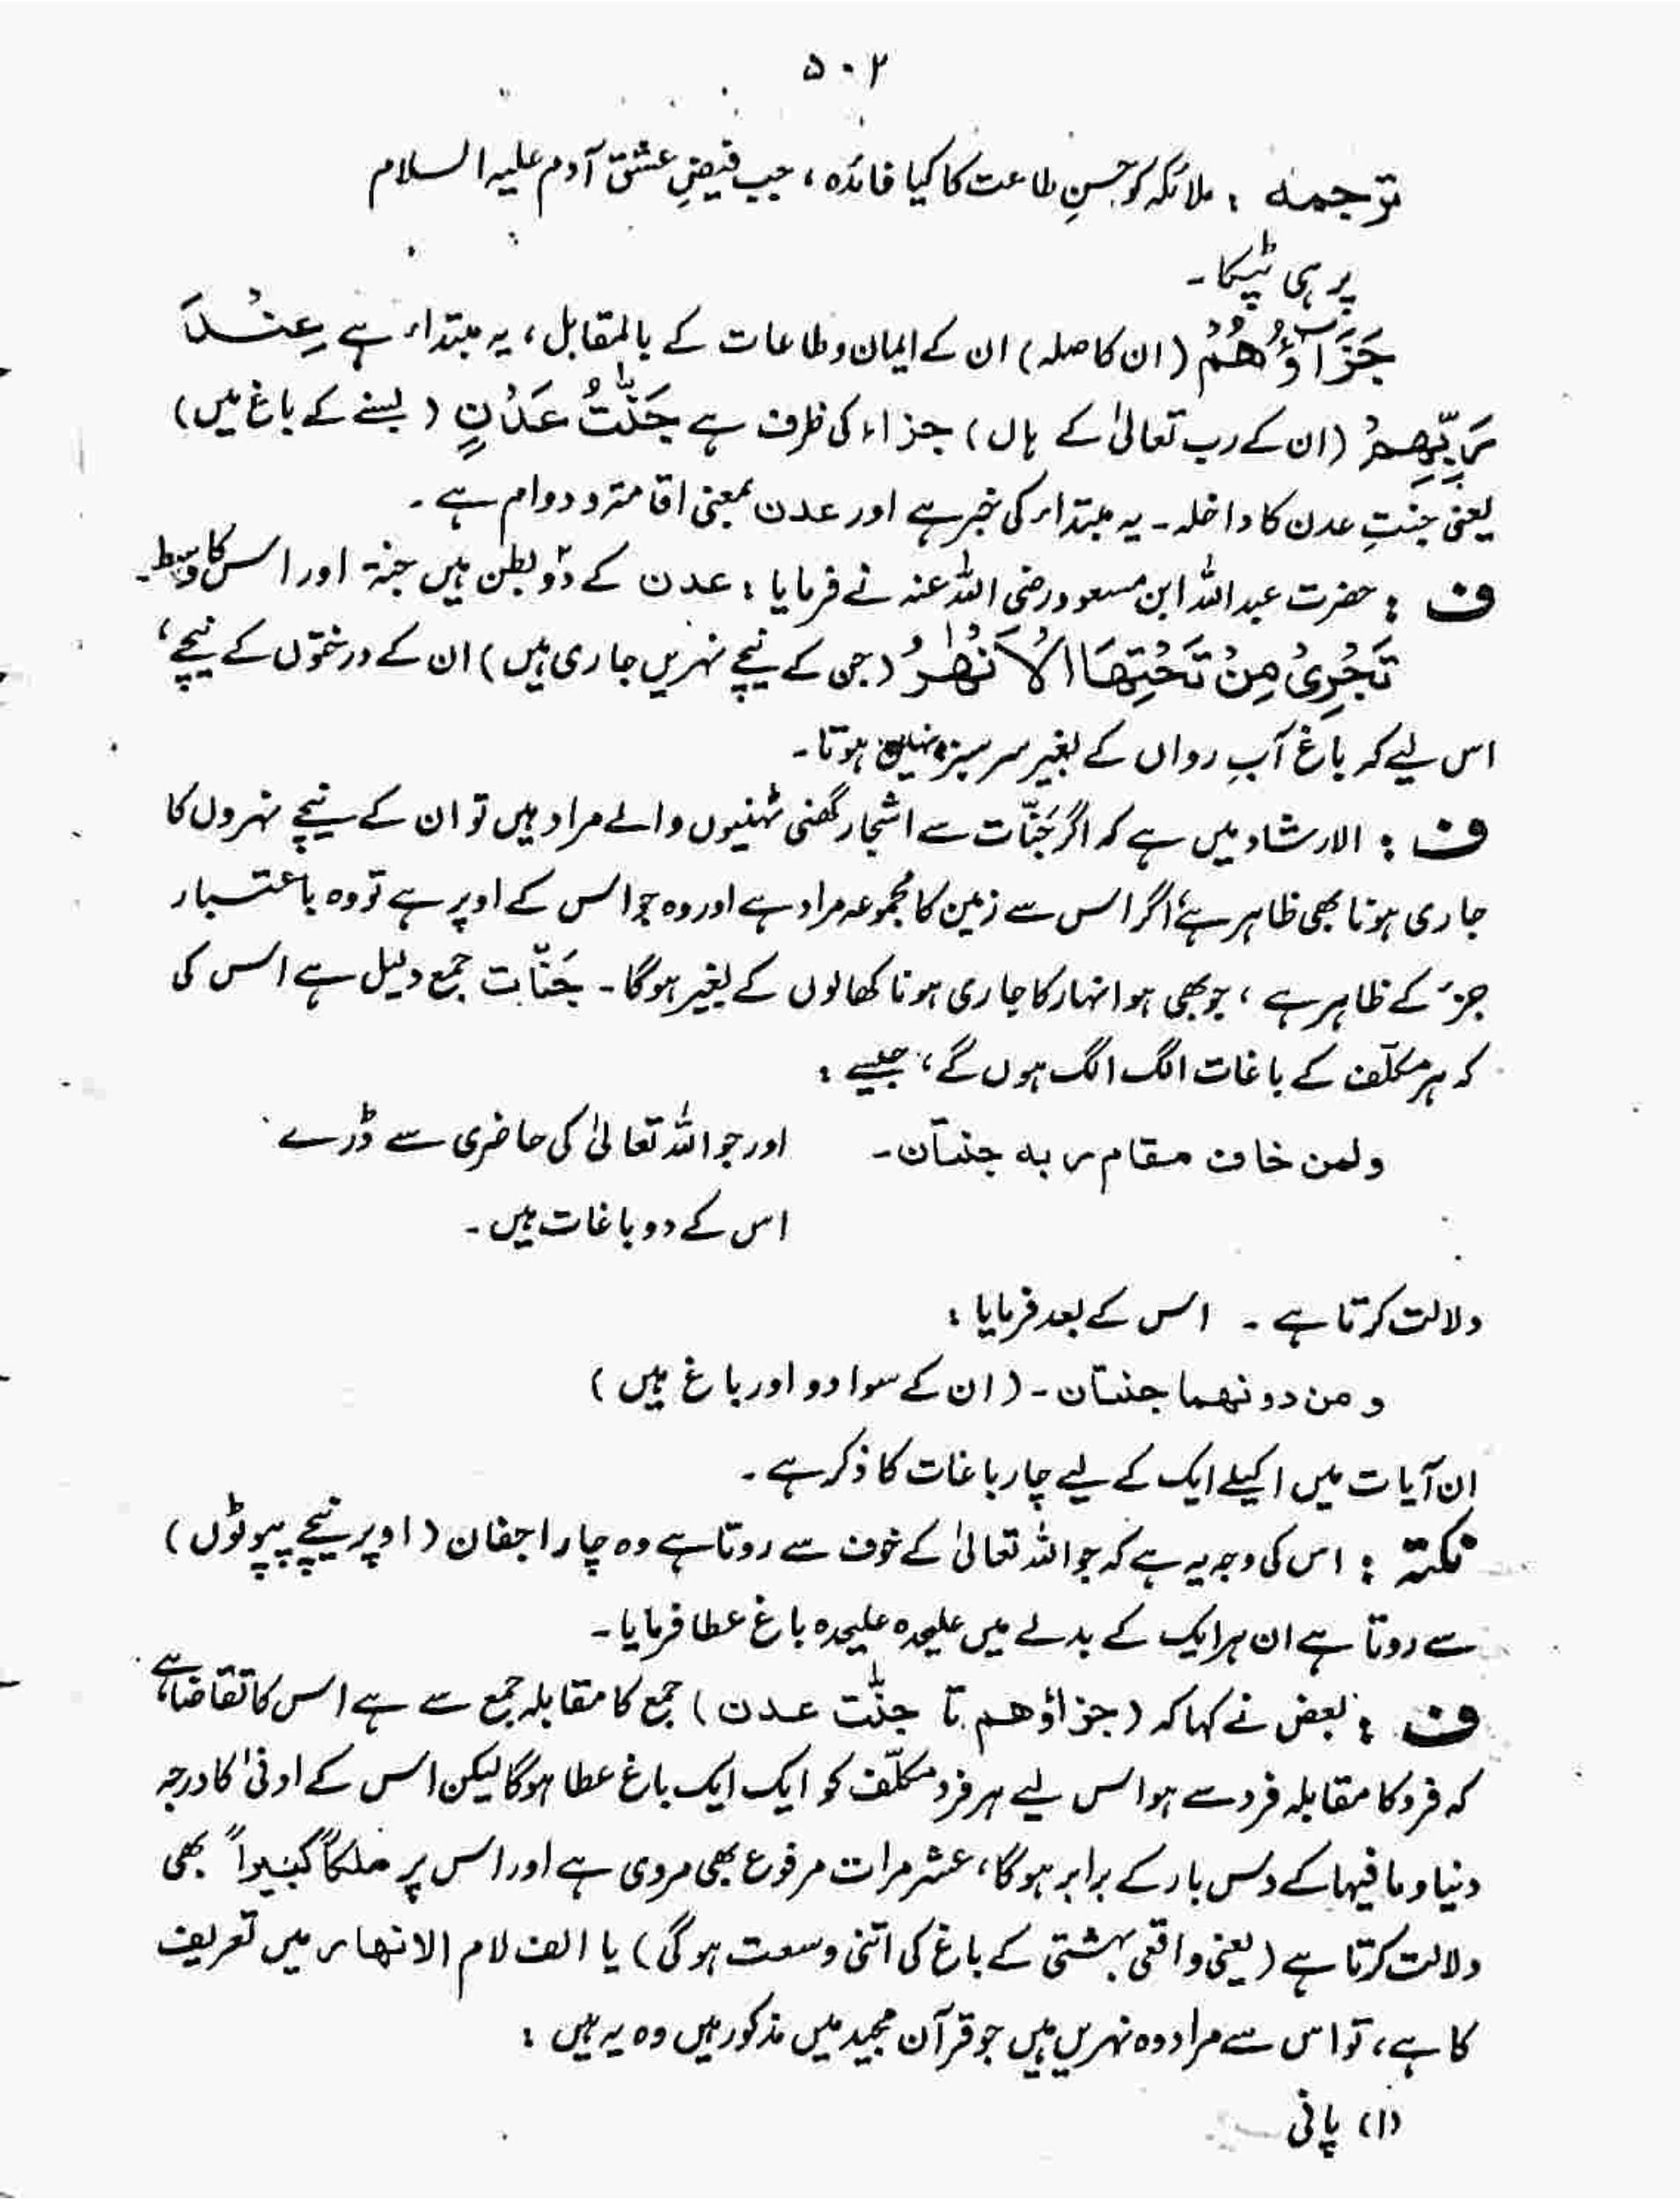 ۵۰۲
ترجمہ : ملائکہ کو حسنِ طاعت کا کیا فائدہ ، جب فیضِ عشق آدم علیہ السلام
پر ہی ٹپکا ۔
جَزَآؤُهُمْ (ان کا صلہ) ان کے ایمان و طاعات کے بالمقابل ، یہ مبتداء ہے عِنْدَ
رَبِّهِمْ (ان کے رب تعالیٰ کے ہاں) جزاء کی ظرف ہے جَنّٰتُ عَدْنٍ (بسنے کے باغ ہیں)
یعنی جنتِ عدن کا داخلہ ۔ یہ مبتداء کی خبر ہے اور عدن بمعنی اقامتہ و دوام ہے ۔
ف : حضرت عبداللہ ابن مسعود رضی اللہ عنہ نے فرمایا : عدن کے دو بطن ہیں جنۃ اور اس کا وسط ۔
تَجْرِیْ مِنْ تَحْتِهَا الْاَنْهٰرُ (جن کے نیچے نہریں جاری ہیں) ان کے درختوں کے نیچے ،
اس لیے کہ باغ آبِ رواں کے بغیر سرسبز نہیں ہوتا ۔
ف : الارشاد میں ہے کہ اگر جَنّات سے اشجار گھنی ٹہنیوں والے مراد ہیں تو ان کے نیچے نہروں کا
جاری ہونا بھی ظاہر ہے ، اگر اس سے زمین کا مجموعہ مراد ہے اور وہ جو اس کے اوپر ہے تو وہ باعتبار
جزء کے ظاہر ہے ، جو بھی ہو انہار کا جاری ہونا کھالوں کے بغیر ہوگا ۔ جَنّات جمع دلیل ہے اس کی
کہ ہر مکلّف کے باغات الگ الگ ہوں گے ، جیسے :
ولمن خاف مقام ربہ جنتٰن ۔ اور جو اللہ تعالیٰ کی حاضری سے ڈرے
اس کے دو باغات ہیں ۔
دلالت کرتا ہے ۔ اس کے بعد فرمایا :
و من دونهما جنتٰن ۔ (ان کے سوا دو اور باغ ہیں)
ان آیات میں اکیلے ایک کے لیے چار باغات کا ذکر ہے ۔
نکتہ : اس کی وجہ یہ ہے کہ جو اللہ تعالیٰ کے خوف سے روتا ہے وہ چار اجفان (اوپر نیچے پپوٹوں)
سے روتا ہے ان ہر ایک کے بدلے میں علیحدہ علیحدہ باغ عطا فرمایا ۔
ف : بعض نے کہا کہ (جزاؤهم تا جنّٰت عدن) جمع کا مقابلہ جمع سے ہے اس کا تقاضا ہے
کہ فرد کا مقابلہ فرد سے ہو اس لیے ہر فرد مکلّف کو ایک ایک باغ عطا ہوگا لیکن اس کے ادنیٰ کا درجہ
دنیا و ما فیہا کے دس بار کے برابر ہوگا ، عشر مرات مرفوع بھی مروی ہے اور اس پر ملکاً کبیراً بھی
دلالت کرتا ہے (یعنی واقعی بہشتی کے باغ کی اتنی وسعت ہوگی) یا الف لام الانهار میں تعریف
کا ہے ، تو اس سے مراد وہ نہریں ہیں جو قرآن مجید میں مذکور ہیں وہ یہ ہیں :
(۱) پانی